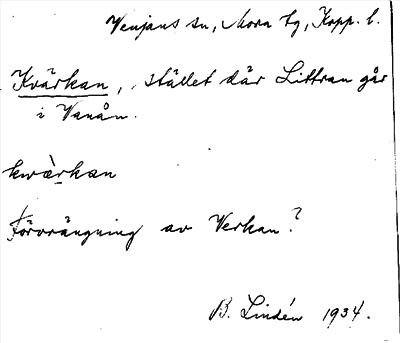 Venjans sn, Mora tg, Kopp. l.
Kvärkan, stället där Littran går
i Vanån.
kwὰrkan
Förvrängning av Verkan?
B. Lindén 1934.